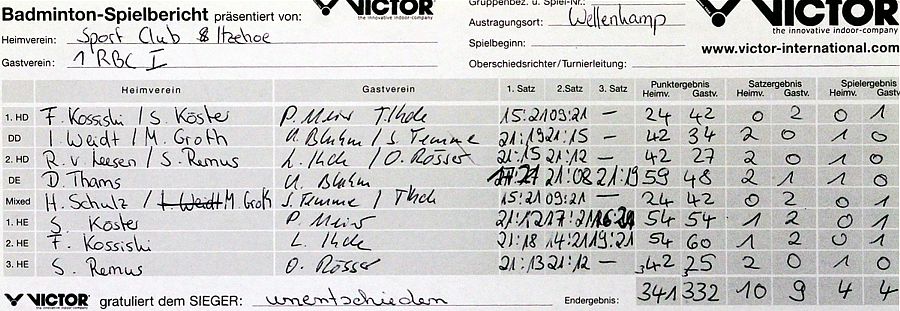 Badminton-Spielbericht präsentiert von: VICTOR the innovative indoor-company
Gruppenbez. u. Spiel-Nr.: VICTOR the innovative indoor-company
Heimverein: Sport Club Itzehoe
Austragungsort: Wellenkamp
Spielbeginn: www.victor-international.com
Gastverein: 1 RBC I
Oberschiedsrichter/Turnierleitung:
Heimverein Gastverein 1. Satz 2.Satz 3. Satz Punktergebnis Heimv. Gastv. Satzergebnis Heimv. Gastv. Spielergebnis Heimv. Gastv.
1. HD F. Kossiski / S. Köster P. Meir T. Ihde 15:21 09:21 — 24 42 0 2 0 1
DD I. Weidt / M. Groth U. Bluhm / S. Temme 21:19 21:15 — 42 34 2 0 1 0
2. HD R. v. Leesen / S. Remus L. Ihde / O. Rösser 21:15 21:12 — 42 27 2 0 1 0
DE D. Thams U. Bluhm 17:21 21:08 21:19 59 48 2 1 1 0
Mixed H. Schulz / I. Weidt M. Groth S. Temme / T. Ihde 15:21 09:21 — 24 42 0 2 0 1
1. HE S. Köster P. Meir 21:12 17:21 16:21 54 54 1 2 0 1
2. HE F. Kossiski L. Ihde 21:18 14:21 19:21 54 60 1 2 0 1
3. HE S. Remus O. Rösser 21:13 21:12 — 42 25 2 0 1 0
VICTOR gratuliert dem SIEGER: unentschieden Endergebnis: 341 332 10 9 4 4